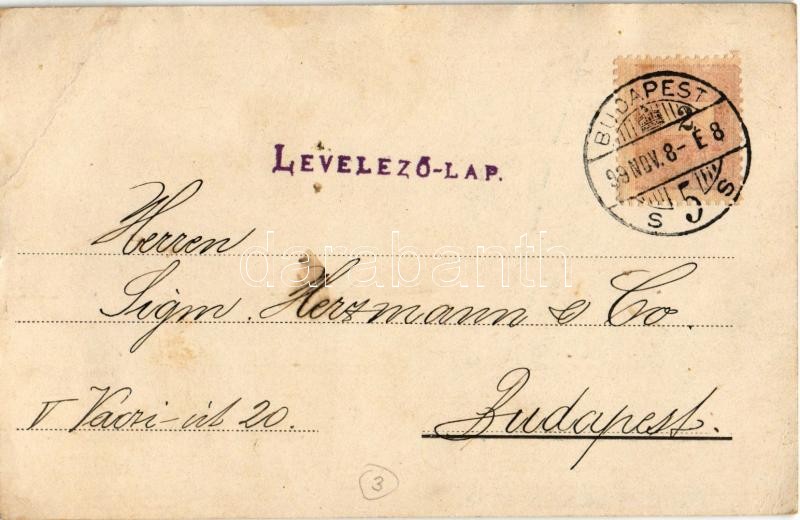 BUDAPEST
2
99 NOV. 8- E 8
S 5 S
LEVELEZŐ-LAP.
Herren
darabanth
Sigm. Herzmann & Co.
V Váczi-út 20.
Budapest.
3